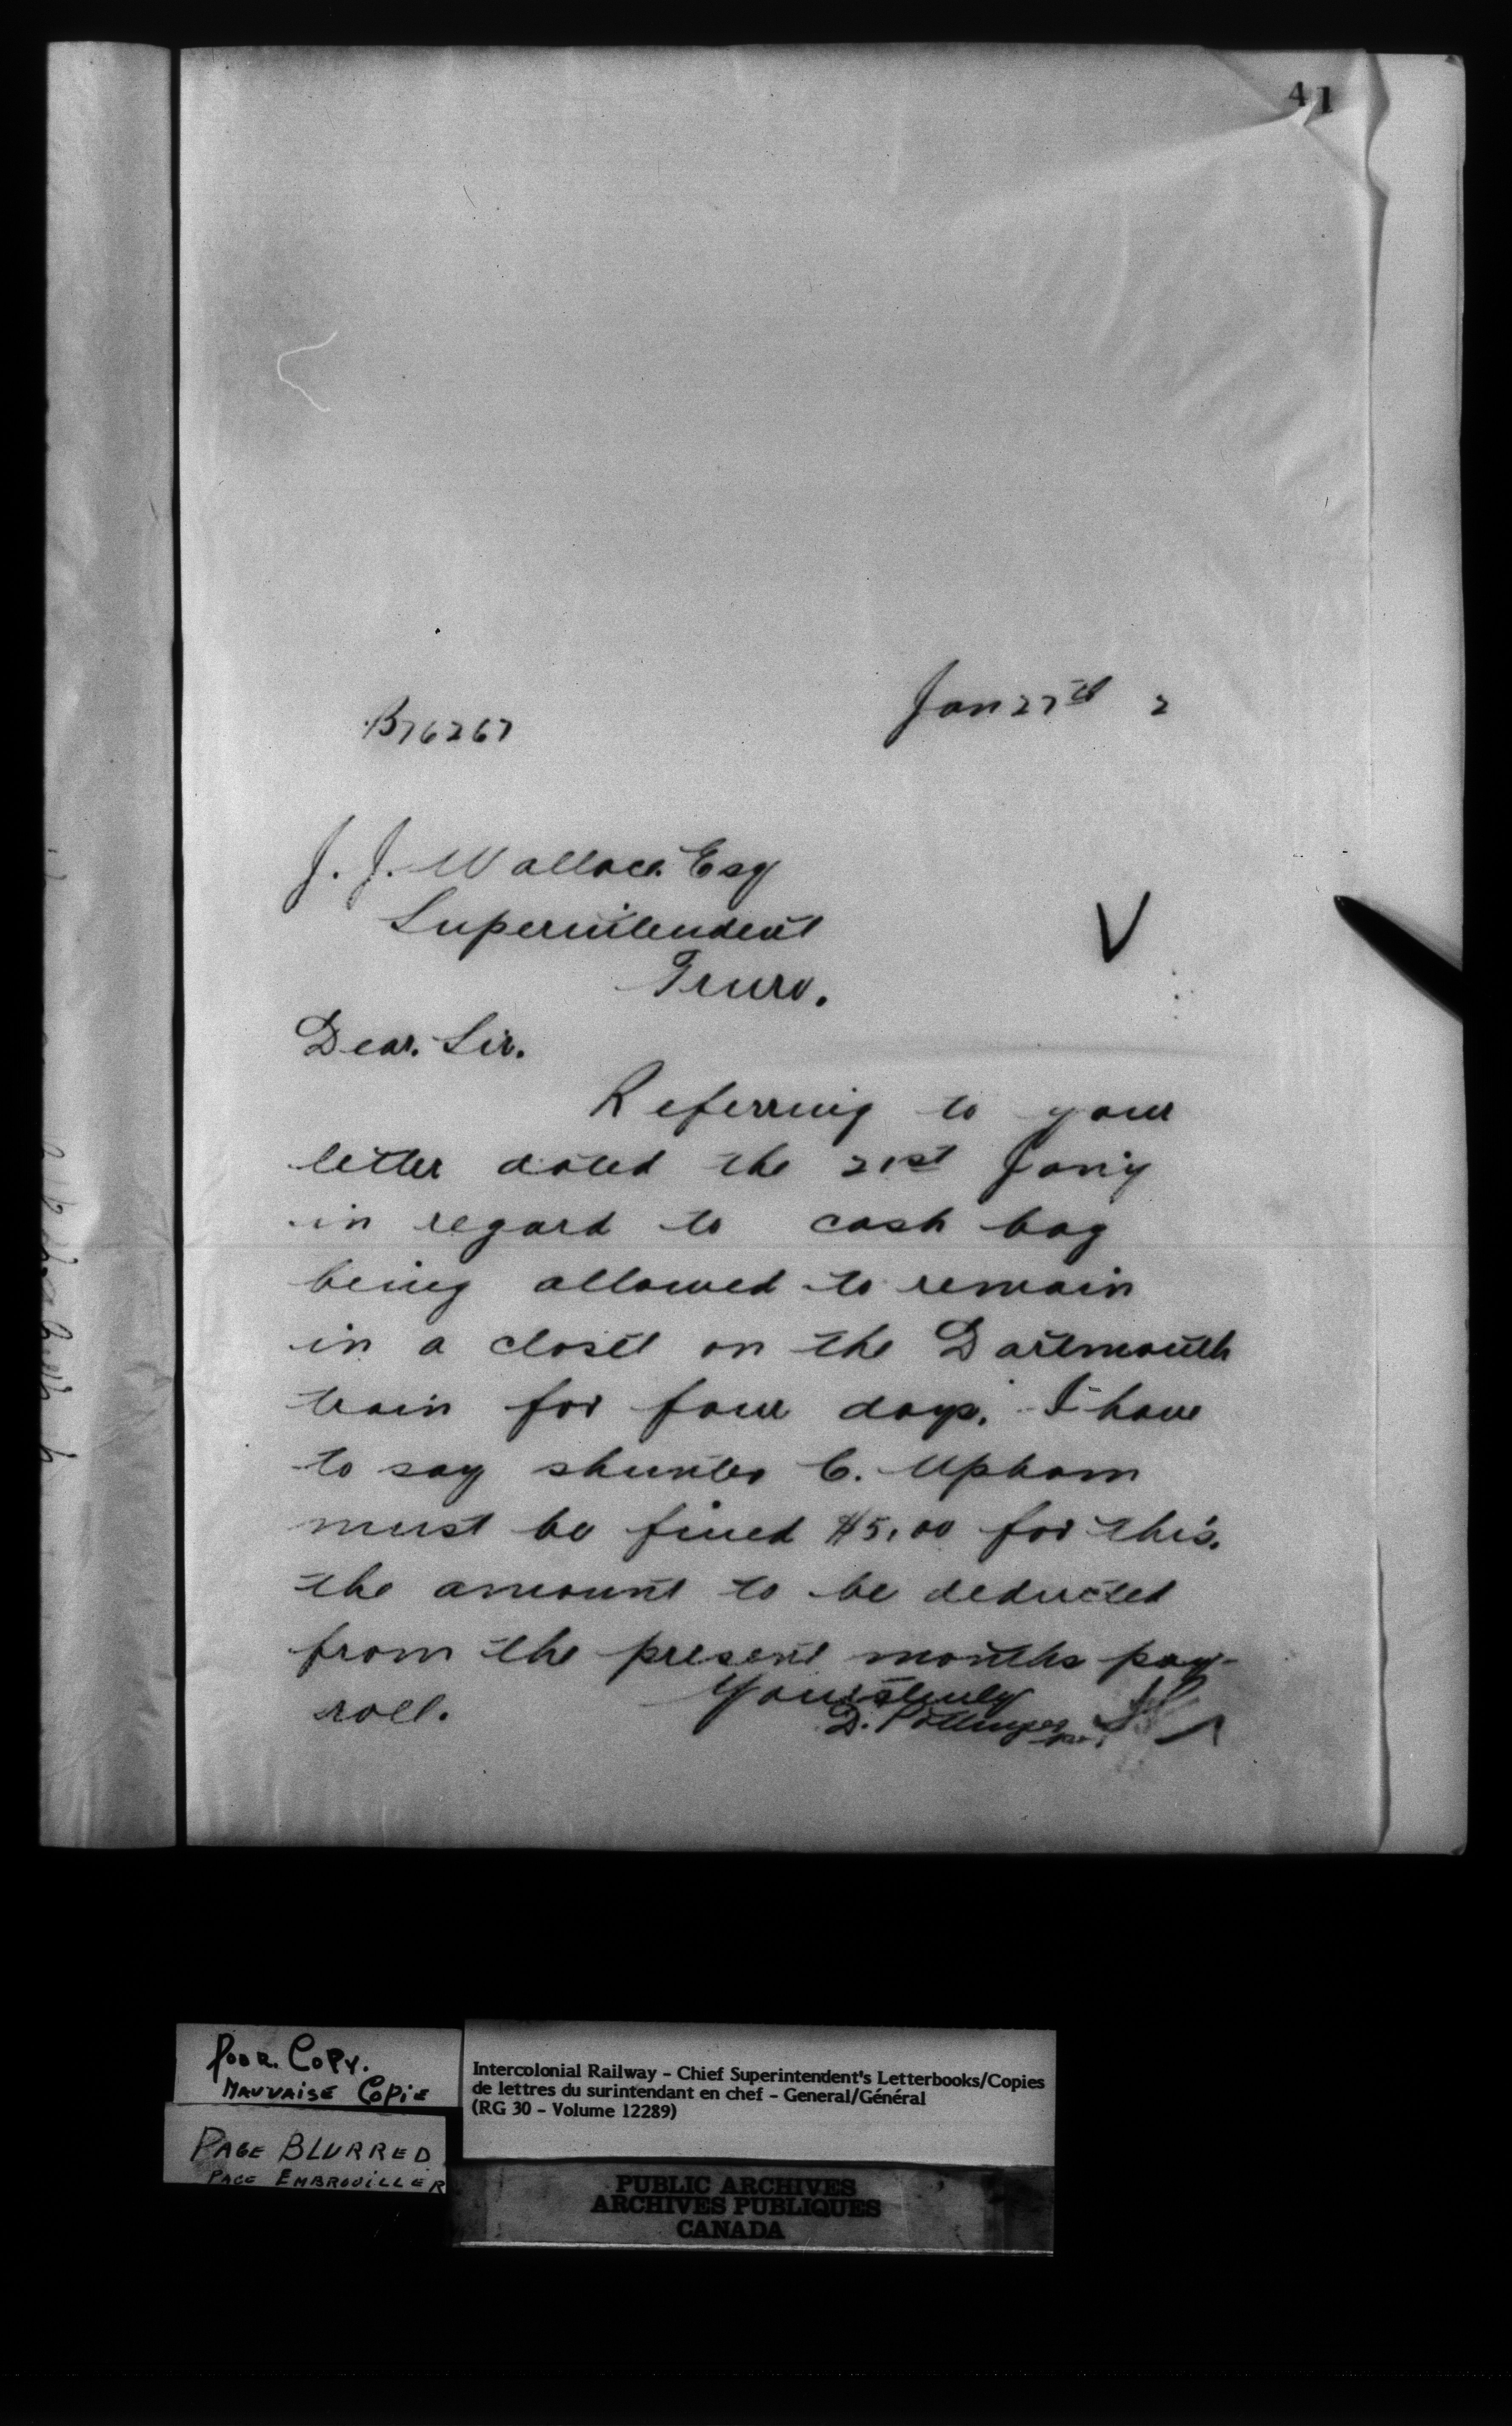 41
Jan 27th 2
B76267
J. J. Wallace Esq
Superintendent
Truro.
Dear. Sir.
Referring to your
letter dated the 21st Jan'y
in regard to cash bag
being allowed to remain
in a closet on the Dartmouth
train for four days, I have
to say shunter C. Upham
must be fined $5.00 for this.
the amount to be deducted
from the present months pay-
roll.
Yours truly
D. Pottinger
per.
V
Poor. Copy.
Mauvaise Copie
Page Blurred
Page Embrouiller
Intercolonial Railway - Chief Superintendent's Letterbooks/Copies
de lettres du surintendant en chef - General/Général
(RG 30 - Volume 12289)
PUBLIC ARCHIVES
ARCHIVES PUBLIQUES
CANADA